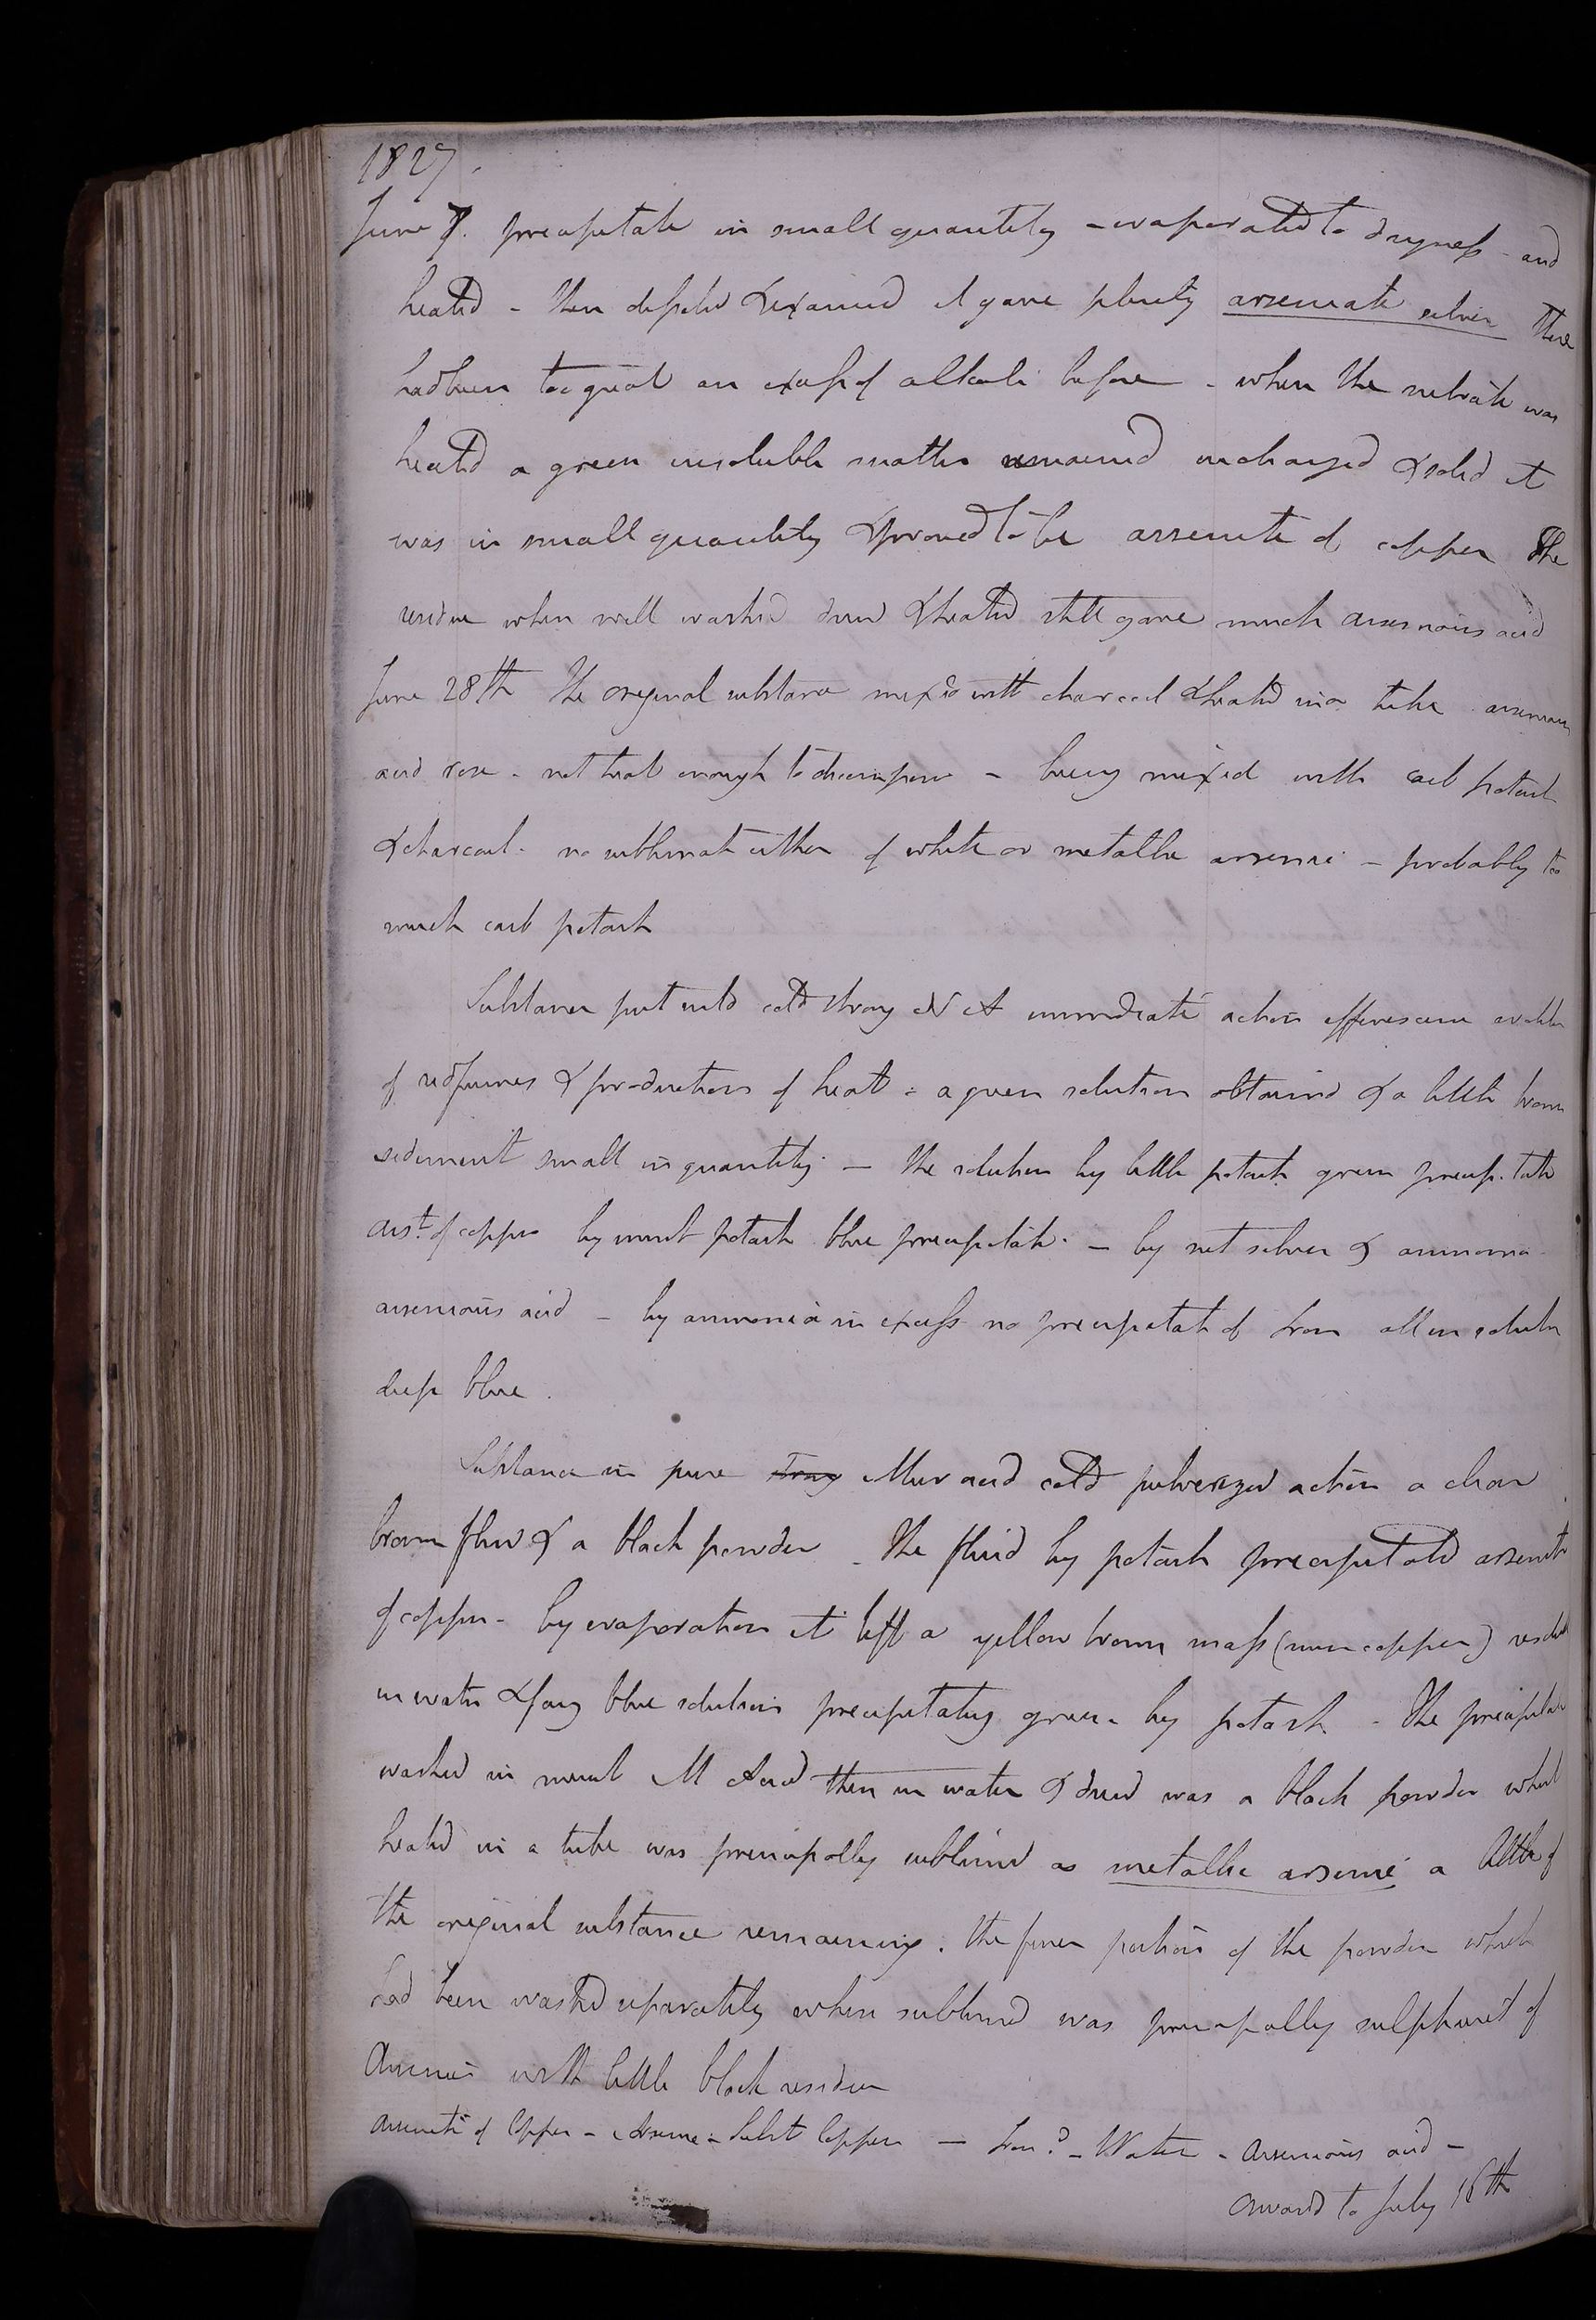 1827.
June 7. precipitate in small quantity - evaporated to dryness - and
heated - then dissolved & examined it gave plenty arseniate silver there
had been too great an excess of alkali before - when the nitrate was
heated a green insoluble matter remained unchanged & solid it
was in small quantity & proved to be arsenite of copper The
residue when well washed dried & heated still gave much arsenious acid
June 28th The original substance mixed with charcoal & heated in a tube arsenious
acid rose - not heat enough to decompose - being mixed with carb potash
& charcoal - no sublimate either of white or metallic arsenic - probably too
much carb potash
Substance put into cold strong N A immediate action effervescence evolution
of red fumes & production of heat - a green solution obtained & a little brown
sediment small in quantity - the solution by little potash green precipitate
arst. of copper by much potash blue precipitate - by nit silver & ammonia
arsenious acid - by ammonia in excess no precipitate of Iron all in solution
deep blue.
Substance in pure strong Mur acid cold pulverized action a clear
brown fluid & a black powder - The fluid by potash precipitated arsenite
of copper - by evaporation it left a yellow brown mass (mur copper)
in water & blue solution precipitating green by potash - The precipitate
washed in M Acid then in water & dried was a black powder which
heated in a tube was principally sublimed as metallic arsenic a little of
the original substance remaining. the finer portion of the powder which
had been washed separately when sublimed was principally sulphuret of
Arsenic with little black residue
Arsenite of Copper - Arsenic - Sulst Copper - Iron? - Water - Arsenious acid -
Onward to July 16th